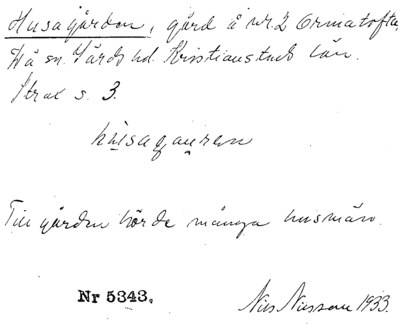 Husagården, gård å nr 2 Ormatofta,
Hå sn. Järds hd. Kristianstads län.
Strax s. 3.
husagauren
Till gården hörde många husmän.
Nr 5343.
Nils Nilsson 1933.